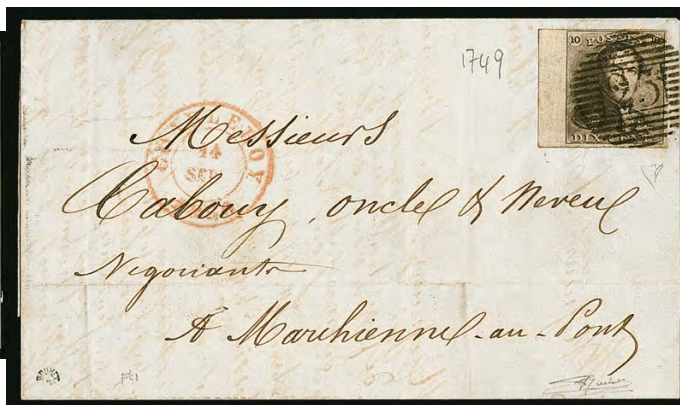 1749
10 POSTES 10
DIX
CHARLEROY
14
SEP
Messieurs
Cabouy, oncle & Neveu
Negociants
A Marchienne-au-Pont
pt1